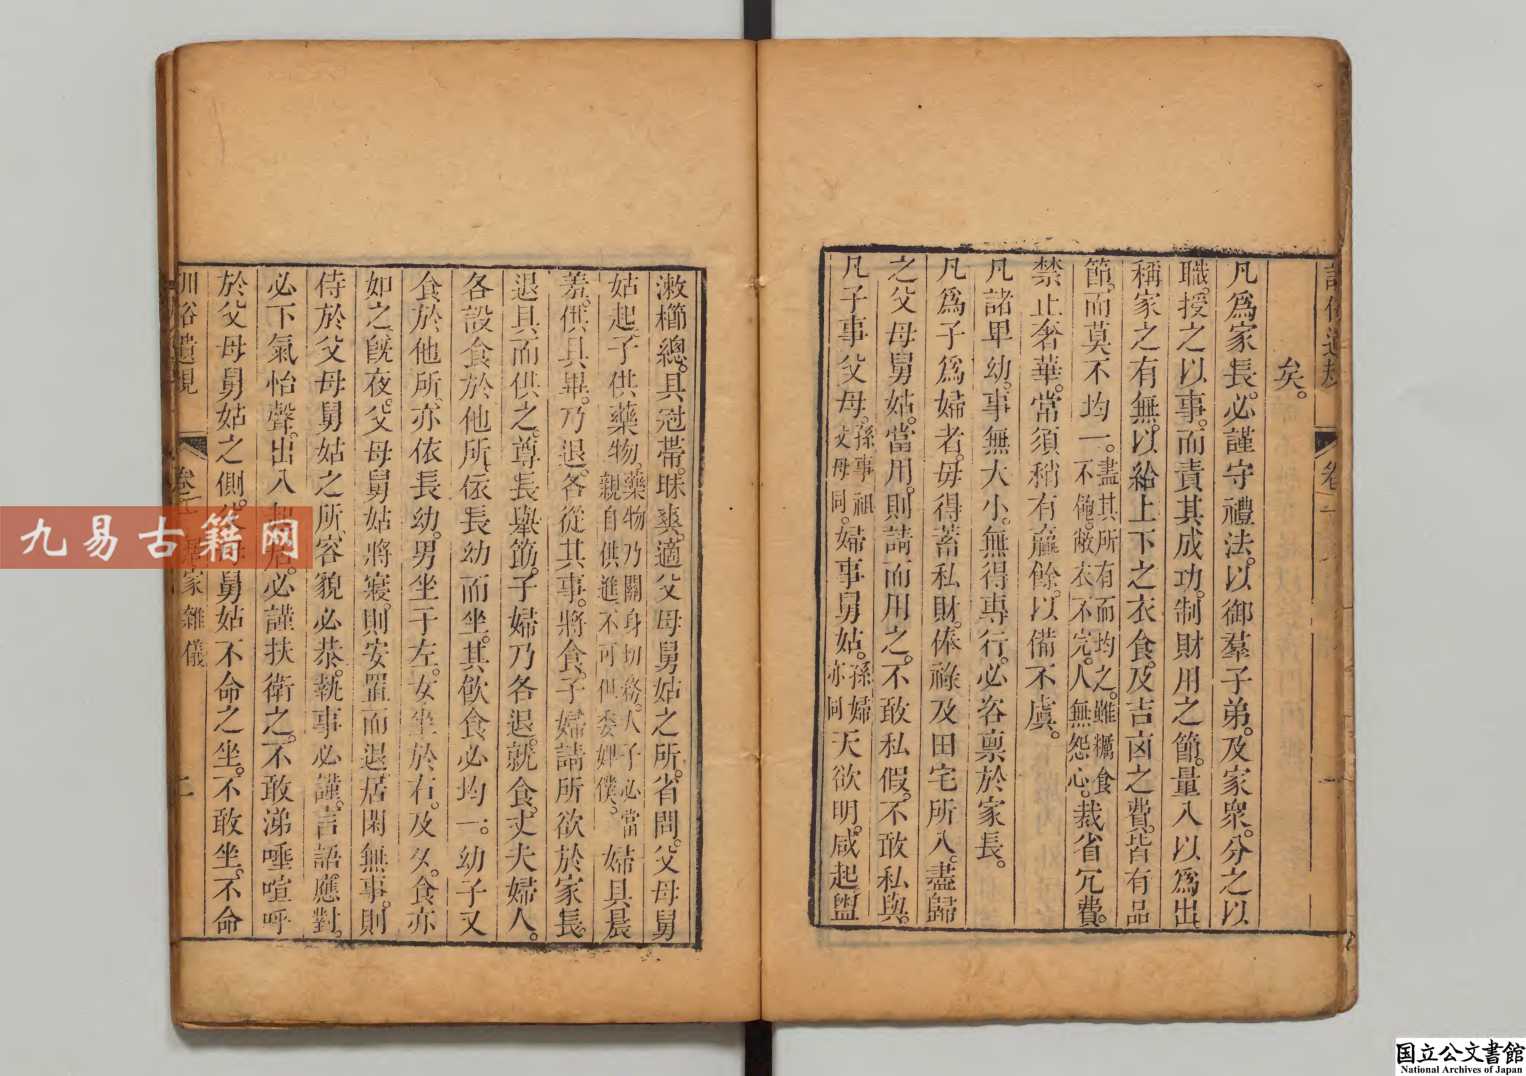 矣。
凡爲家長。必謹守禮法。以御羣子弟。及家衆。分之以
職。授之以事。而責其成功。制財用之節。量入以爲出。
稱家之有無。以給上下之衣食。及吉凶之費。皆有品
節。而莫不均一。盡其所有而均之。雖糲食不飽。敝衣不完。人無怨心。裁省冗費。
禁止奢華。常須稍有贏餘。以備不虞。
凡諸卑幼。事無大小。無得專行。必咨稟於家長。
凡爲子爲婦者。毋得蓄私財。俸祿及田宅所入。盡歸
之父母舅姑。當用。則請而用之。不敢私假。不敢私與。
凡子事父母。孫事祖父母同。婦事舅姑。孫婦亦同天欲明。咸起盥
漱櫛總。具冠帶。昧爽。適父母舅姑之所。省問。父母舅
姑起。子供藥物。藥物乃關身切務。人子必當親自供進。不可但委婢僕。婦具晨
羞。供具畢。乃退。各從其事。將食。子婦請所欲於家長。
退具而供之。尊長舉筯。子婦乃各退。就食。丈夫婦人。
各設食於他所。依長幼而坐。其飲食必均一。幼子又
食於他所。亦依長幼。男坐于左。女坐於右。及夕。食亦
如之。旣夜。父母舅姑將寢。則安置而退。居閑無事。則
侍於父母舅姑之所。容貌必恭。執事必謹。言語應對。
必下氣怡聲。出入起居。必謹扶衛之。不敢涕唾喧呼
於父母舅姑之側。父母舅姑不命之坐。不敢坐。不命
訓俗遺規
卷二
居家雜儀
二
九易古籍网
国立公文書館
National Archives of Japan